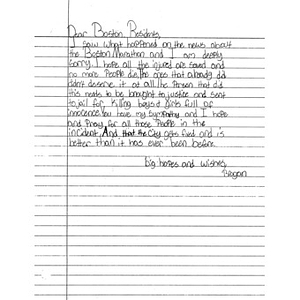 Dear Boston Residents,
I saw what happened on the news about
the Boston Marathon and I am deeply
sorry. I hope all the injured are saved and
no more people die. The ones that already did
didn't deserve it at all. The person that did
this needs to be brought to justice and sent
to jail for killing boys & girls full of
innocence. You have my sympathy and I hope
and pray for all those people in the
incident. And that the City gets fixed and is
better than it has ever been before.
big hopes and wishes,